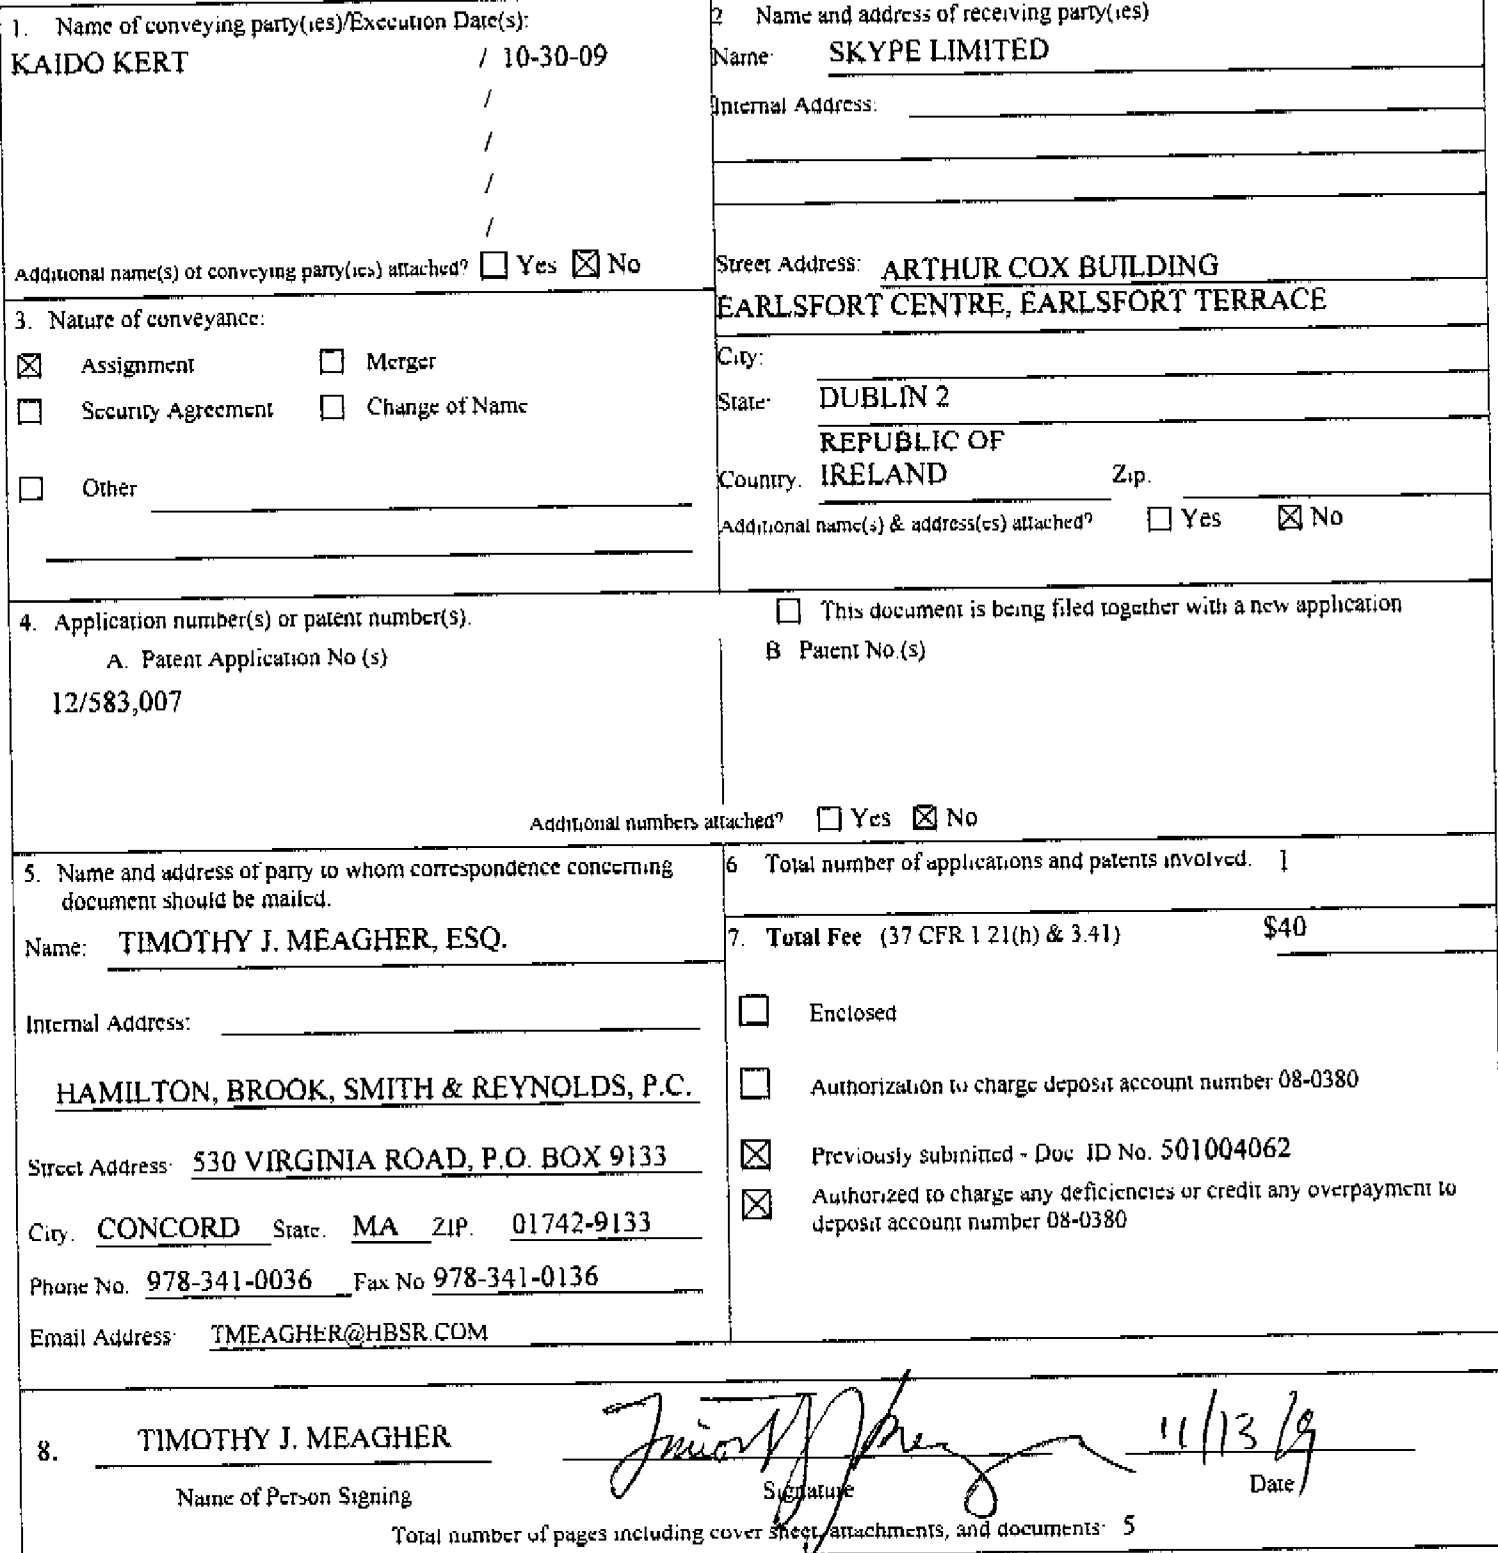 1. Name of conveying party(ies)/Execution Date(s):
KAIDO KERT / 10-30-09
/
/
/
/
Additional name(s) of conveying party(ies) attached? ☐ Yes ☒ No
2 Name and address of receiving party(ies)
Name: SKYPE LIMITED
Internal Address:
Street Address: ARTHUR COX BUILDING
EARLSFORT CENTRE, EARLSFORT TERRACE
City:
State: DUBLIN 2
REPUBLIC OF
Country. IRELAND Zip.
Additional name(s) & address(es) attached? ☐ Yes ☒ No
3. Nature of conveyance:
☒ Assignment ☐ Merger
☐ Security Agreement ☐ Change of Name
☐ Other
4. Application number(s) or patent number(s). ☐ This document is being filed together with a new application
A. Patent Application No (s) B Patent No.(s)
12/583,007
Additional numbers attached? ☐ Yes ☒ No
5. Name and address of party to whom correspondence concerning
document should be mailed.
Name: TIMOTHY J. MEAGHER, ESQ.
Internal Address:
HAMILTON, BROOK, SMITH & REYNOLDS, P.C.
Street Address: 530 VIRGINIA ROAD, P.O. BOX 9133
City. CONCORD State. MA ZIP. 01742-9133
Phone No. 978-341-0036 Fax No 978-341-0136
Email Address: TMEAGHER@HBSR.COM
6 Total number of applications and patents involved. 1
7. Total Fee (37 CFR 1 21(h) & 3.41) $40
☐ Enclosed
☐ Authorization to charge deposit account number 08-0380
☒ Previously submitted - Doc ID No. 501004062
☒ Authorized to charge any deficiencies or credit any overpayment to
deposit account number 08-0380
8. TIMOTHY J. MEAGHER 11/13/09
Name of Person Signing Signature Date
Total number of pages including cover sheet, attachments, and documents: 5